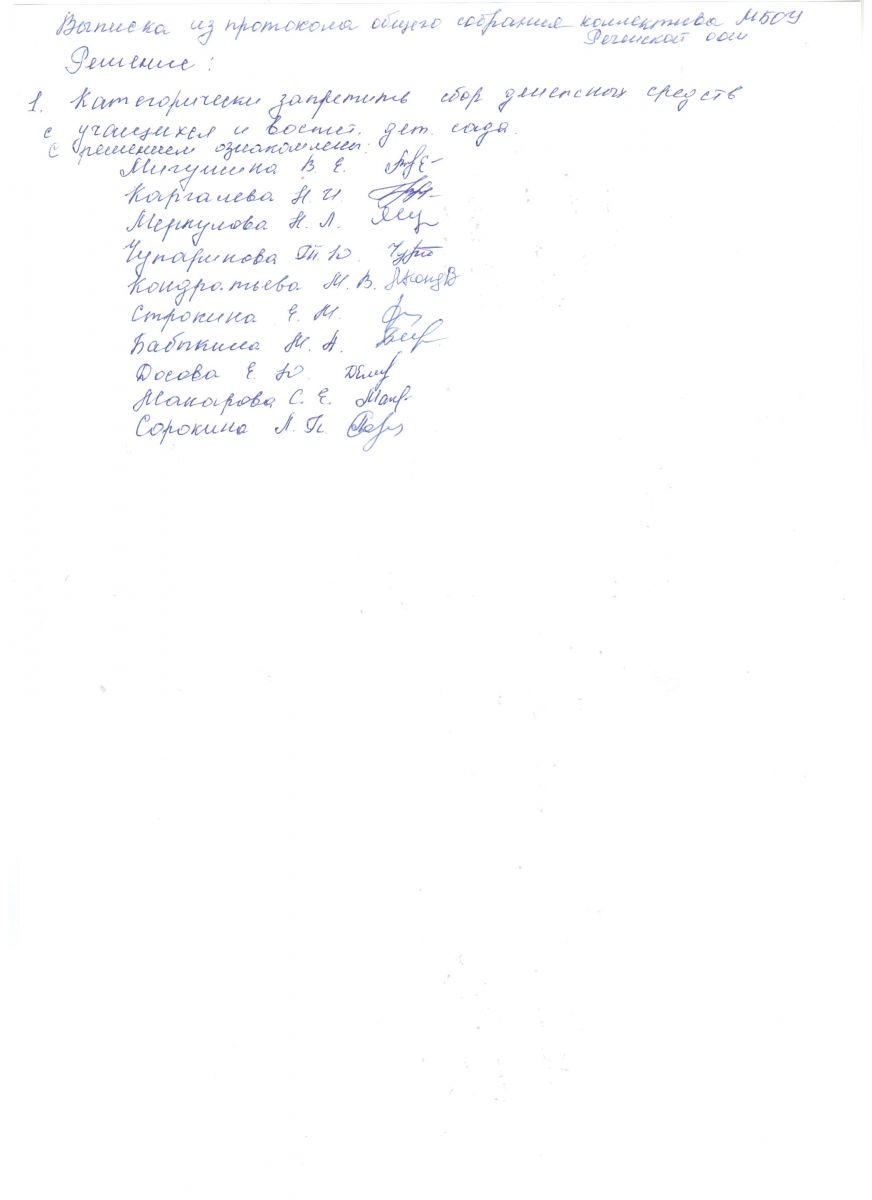 Выписка из протокола общего собрания коллектива МБОУ
Решение:
1. Категорически запретить сбор денежных средств
с учащихся и воспит. дет. сада.
С решением ознакомлены:
Мигушина В. Е.
Каргалева Н. И.
Меркулова Н. Л.
Чупаринова Т. Ю.
Кондратьева М. В.
Строкина Е. М.
Бабыкина М. А.
Досова Е. Ю.
Макарова С. Е.
Сорокина Л. П.